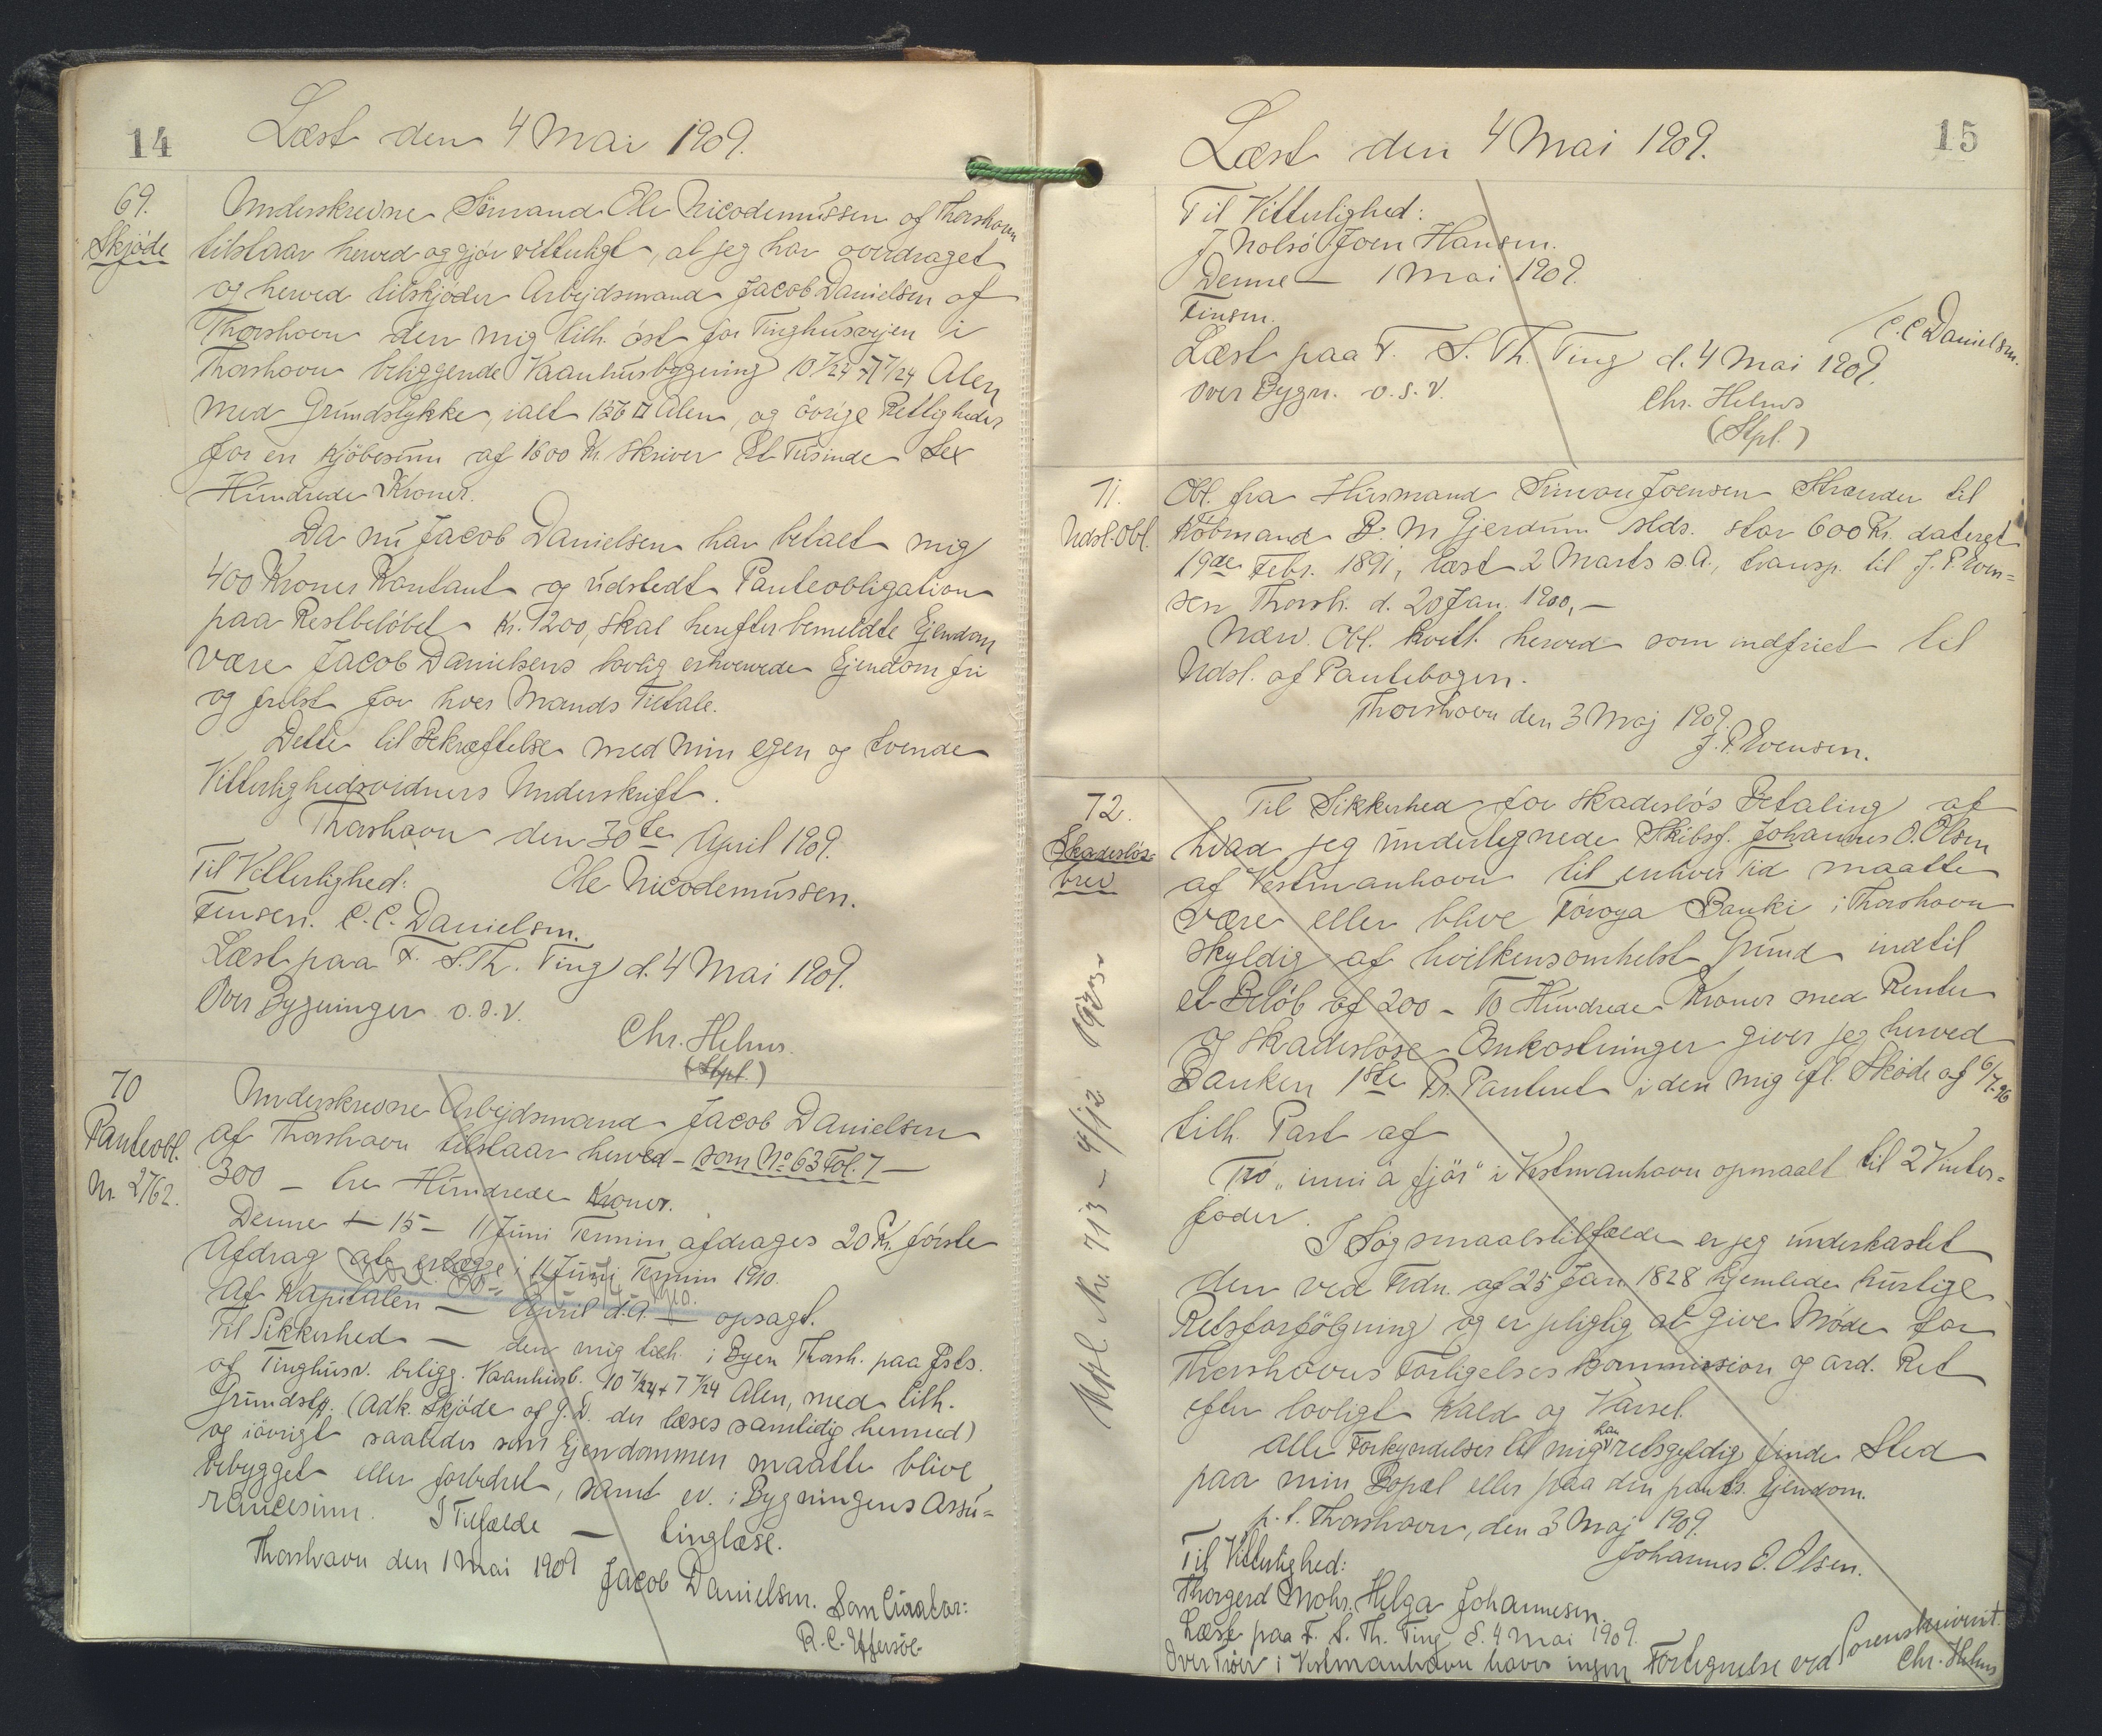 14
Læst den 4 Mai 1909.
69.
Skjöde
Underskrevne Sömand Ole Nicodemussen af Thorshavn
tilstaar herved og gjör vitterligt, at jeg har overdraget
og herved tilskjöder Arbejdsmand Jacob Danielsen af
Thorshavn den mig tilh. öst for Tinghusvejen i
Thorshavn beliggende Vaanhusbygning 10 7/24 + 7 7/24 Alen
med Grundstykke, ialt 136 □ Alen, og övrige Rettigheder
for en Kjöbesum af 1600 Kr. skriver Et Tusinde Sex
Hundrede Kroner.
Da nu Jacob Danielsen har betalt mig
400 Kroner Kontant og udstedt Panteobligation
paa Restbelöbet Kr. 1200, skal herefter bemeldte Ejendom
være Jacob Danielsens lovlig erhvervede Ejendom fri
og frelst for hver Mands Tiltale.
Dette til Bekræftelse med min egen og tvende
Vitterlighedsvidners Underskrift.
Thorshavn den 30te April 1909.
Til Vitterlighed:
Ole Nicodemussen.
Finsen. C. C. Danielsen.
Læst paa F. S. Th. Ting d. 4 Mai 1909.
Over Bygninger o.s.v.
Chr. Helms.
(Stpl.)
70
Panteobl.
Nr. 2762.
Underskrevne Arbejdsmand Jacob Danielsen
af Thorshavn tilstaar herved – som No 63 Fol. 7 –
300 – tre Hundrede Kroner.
Denne – 15 – 11 Juni Termin afdrages 20 Kr. förste
Afdrag at erlægge i 11 Juni Termin 1910.
Af Kapitalen – April d.A. – opsagt.
Til Sikkerhed – den mig tilh. i Byen Thorsh. paa Östs.
af Tinghusv. beligg. Vaanhusb. 10 7/24 + 7 7/24 Alen, med tilh.
Grundstg. (Adk. Skjöde af G. D. der læses samtidig hermed)
og iövrigt saaledes som Ejendommen maatte blive
bebygget eller forbedret, samt ev. i Bygningens Assu=
rancesum. I Tilfælde – tinglæse.
Thorshavn den 1 Mai 1909
Jacob Danielsen. Som Curator:
R. C. Effersöe
15
Læst den 4 Mai 1909.
Til Vitterlighed:
J. Nolsö Joen Hansen.
Denne – 1 Mai 1909.
Finsen.
C. C. Danielsen.
Læst paa F. S. Th. Ting d. 4 Mai 1909.
Over Bygn. o.s.v.
Chr. Helms
(Stpl.)
71.
Udsl. Obl.
Obl. fra Husmand Simon Joensen Strender til
Köbmand B. M Gjerdum slds. stor 600 Kr. dateret
19de Febr. 1891, læst 2 Marts s.A., transp. til J. P. Even=
sen Thorsh. d. 20 Jan. 1900, –
Næv. Obl. kvitt. herved som indfriet til
Udsl. af Pantebogen.
Thorshavn den 3 Maj 1909.
J. P. Evensen.
72.
Skadeslös=
brev
Udsl. Nr. 713 – 4/12 1923.
Til Sikkerhed for skadeslös Betaling af
hvad jeg undertegnede Skibsf. Johannes O. Olsen
af Vestmanhavn til enhver Tid maatte
være eller blive Föroya Banki i Thorshavn
skyldig af hvilkensomhelst Grund indtil
et Belöb af 200 – To Hundrede Kroner med Renter
og skadeslöse Omkostninger giver jeg herved
Banken 1ste Pr. Panteret i den mig ifl. Sköde af 6/7-96
tilh. Part af
Tró „inni á fjör" i Vestmanhavn opmaalt til 2 Vinter=
foder.
I Sögsmaalstilfælde er jeg underkastet
den ved Frdn. af 25 Jan. 1828 hjemlede hurtige
Retsforfölgning og er pligtig at give Möde for
Thorshavns Forligelseskommission og ord. Ret
efter lovligt Kald og Varsel.
Alle Forkyndelser til mig kan retsgyldig finde Sted
paa min Bopæl eller paa den pants. Ejendom.
p. t. Thorshavn, den 3 Maj 1909.
Til Vitterlighed:
Johannes O. Olsen.
Thorgerd Mohr. Helga Johannesen.
Læst paa F. S. Th. Ting d. 4 Mai 1909.
Over Tröer i Vestmanhavn haves ingen Fortegnelse ved Sorenskriveriet.
Chr. Helms